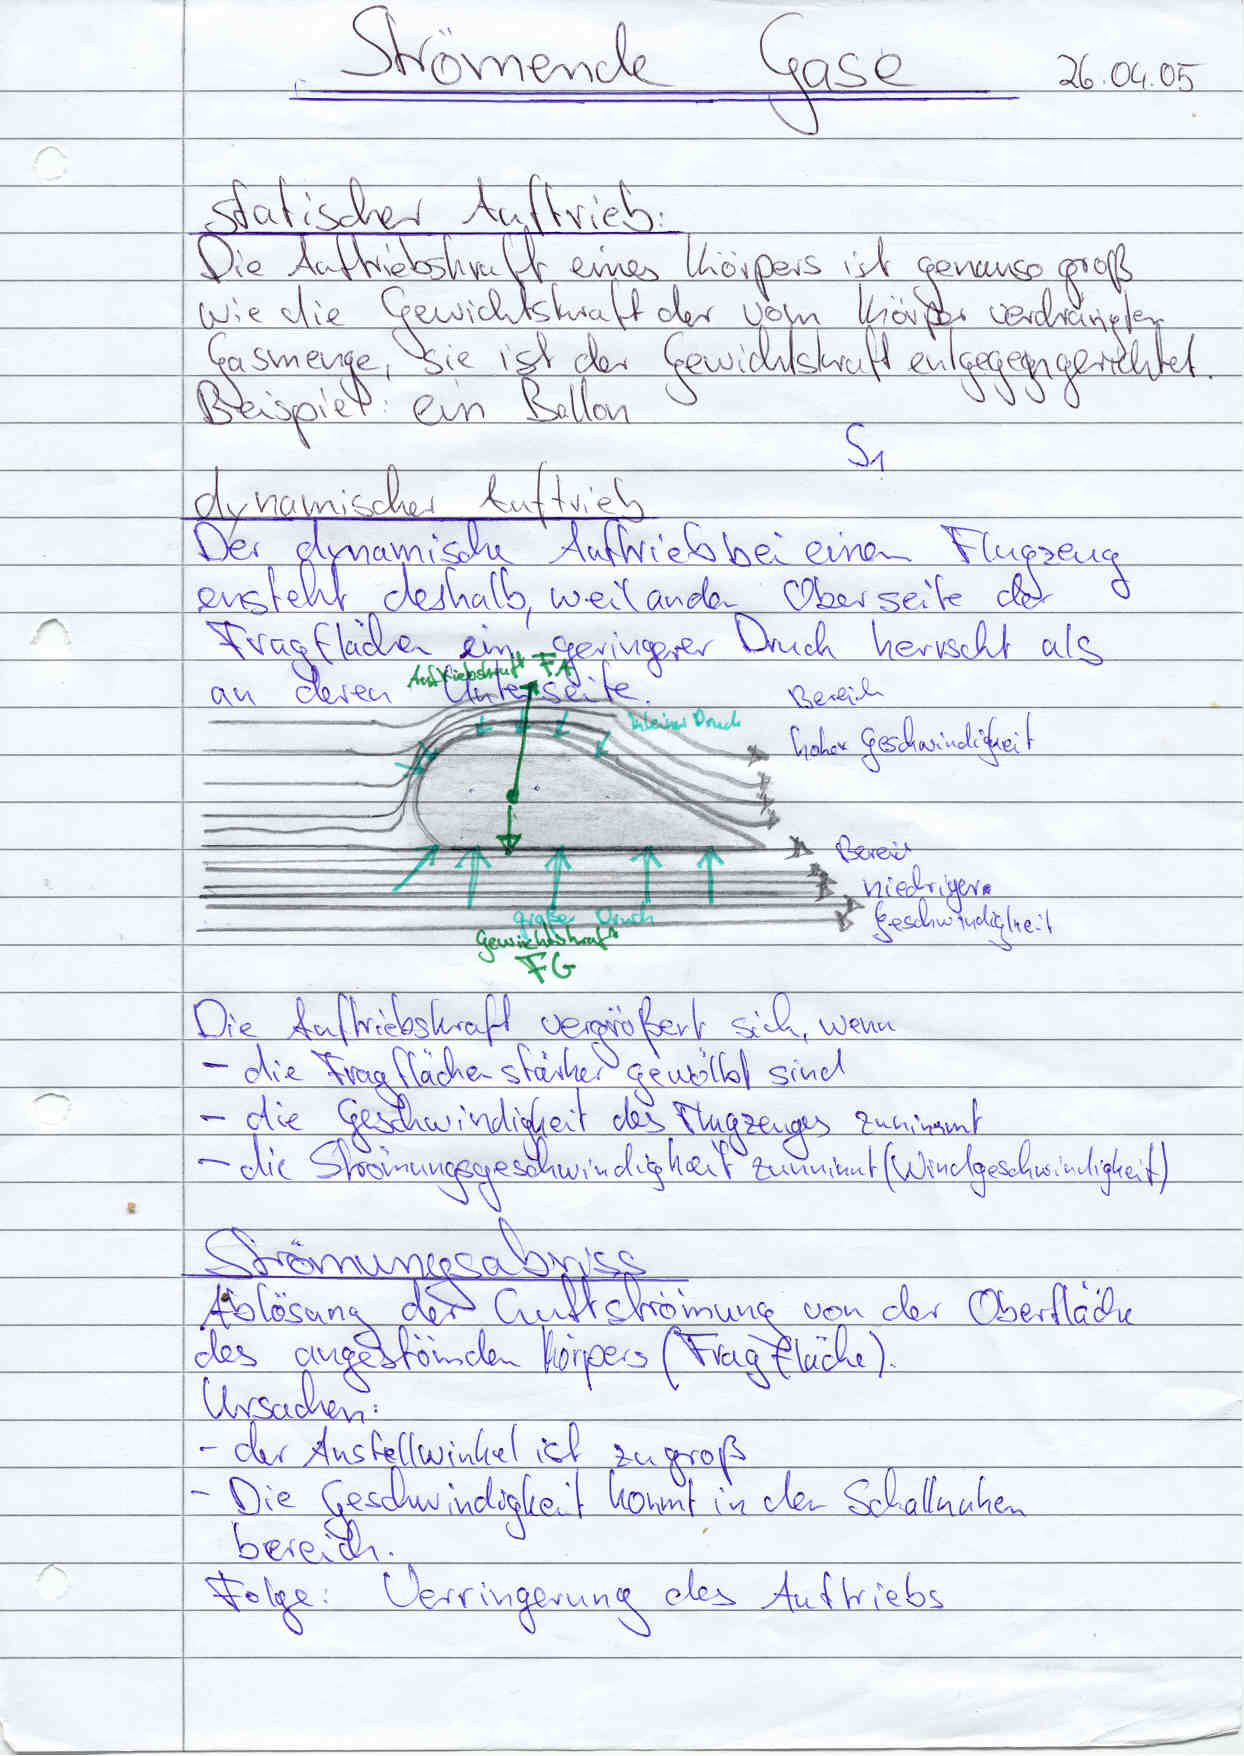 Strömende Gase 26.04.05
statischer Auftrieb:
Die Auftriebskraft eines Körpers ist genauso groß
wie die Gewichtskraft der vom Körper verdrängten
Gasmenge, sie ist der Gewichtskraft entgegengerichtet.
Beispiel: ein Ballon
S1
dynamischer Auftrieb
Der dynamische Auftrieb bei einem Flugzeug
ensteht deshalb, weil an der Oberseite der
Tragflächen ein geringerer Druck herrscht als
an deren Unterseite.
Auftriebskraft FA
kleiner Druck
Bereich
hoher Geschwindigkeit
Bereich
niedriger
Geschwindigkeit
großer Druck
Gewichtskraft
FG
Die Auftriebskraft vergrößert sich, wenn
- die Tragflächen stärker gewölbt sind
- die Geschwindigkeit des Flugzeuges zunimmt
- die Strömungsgeschwindigkeit zunimmt (Windgeschwindigkeit)
Strömungsabriss
Ablösung der Luftströmung von der Oberfläche
des angeströmden Körpers (Tragfläche).
Ursachen:
- der Anstellwinkel ist zu groß
- Die Geschwindigkeit kommt in den Schallnahen
bereich.
Folge: Verringerung des Auftriebs